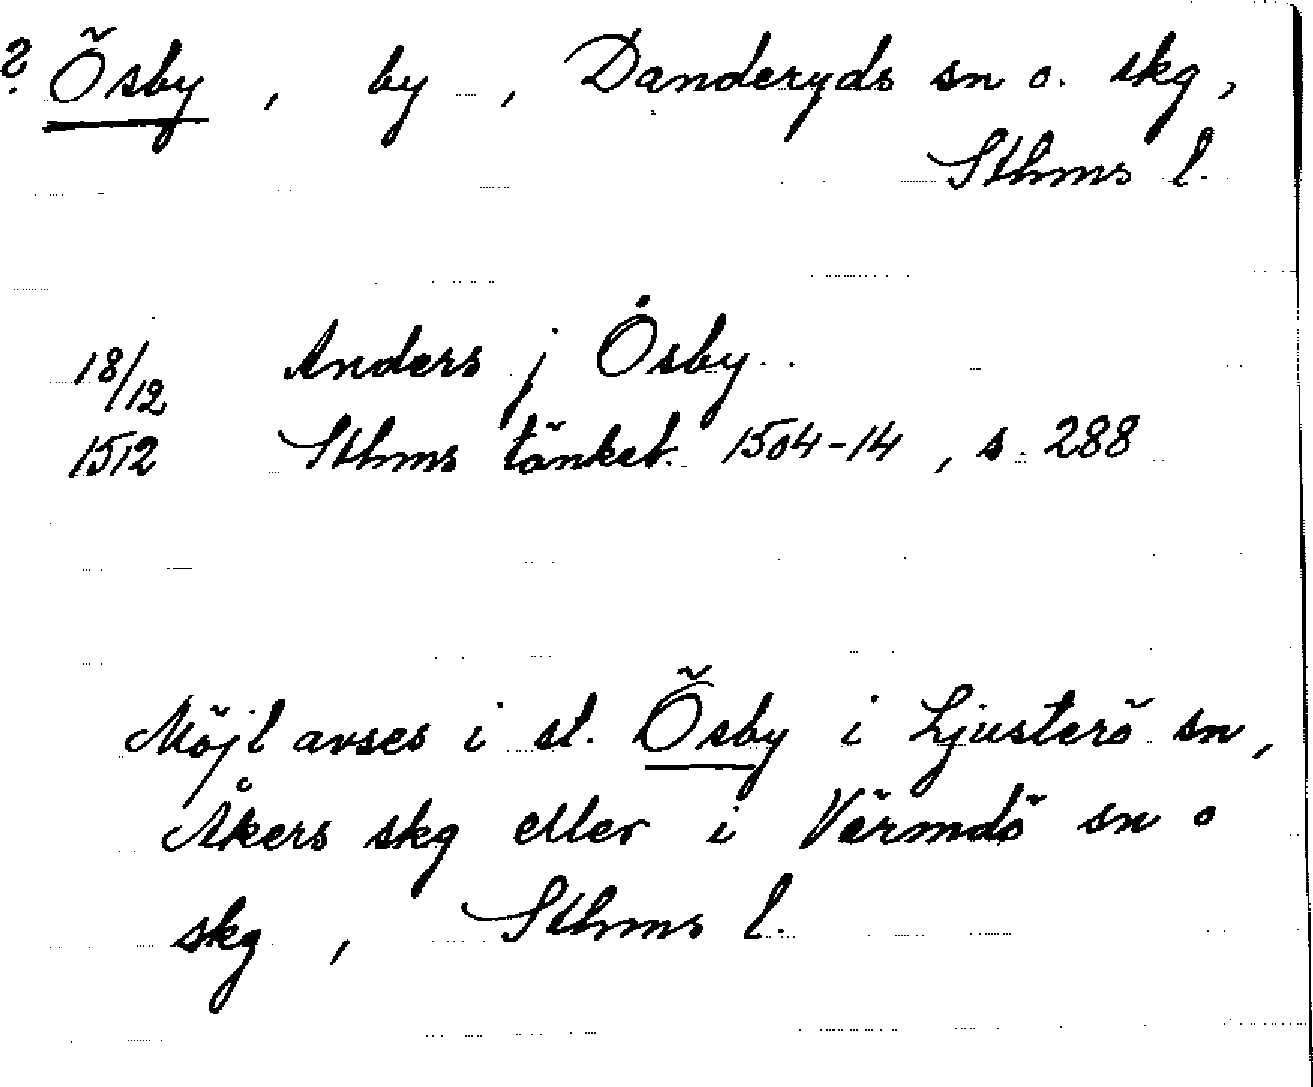 ? Ösby, by, Danderyds sn o. skg,
Sthms l.
18/12 Anders j Ösby
1512 Sthms tänkeb. 1504-14, s 288
Möjl avses i st. Ösby i Ljusterö sn,
Åkers skg eller i Värmdö sn o
skg, Sthms l.